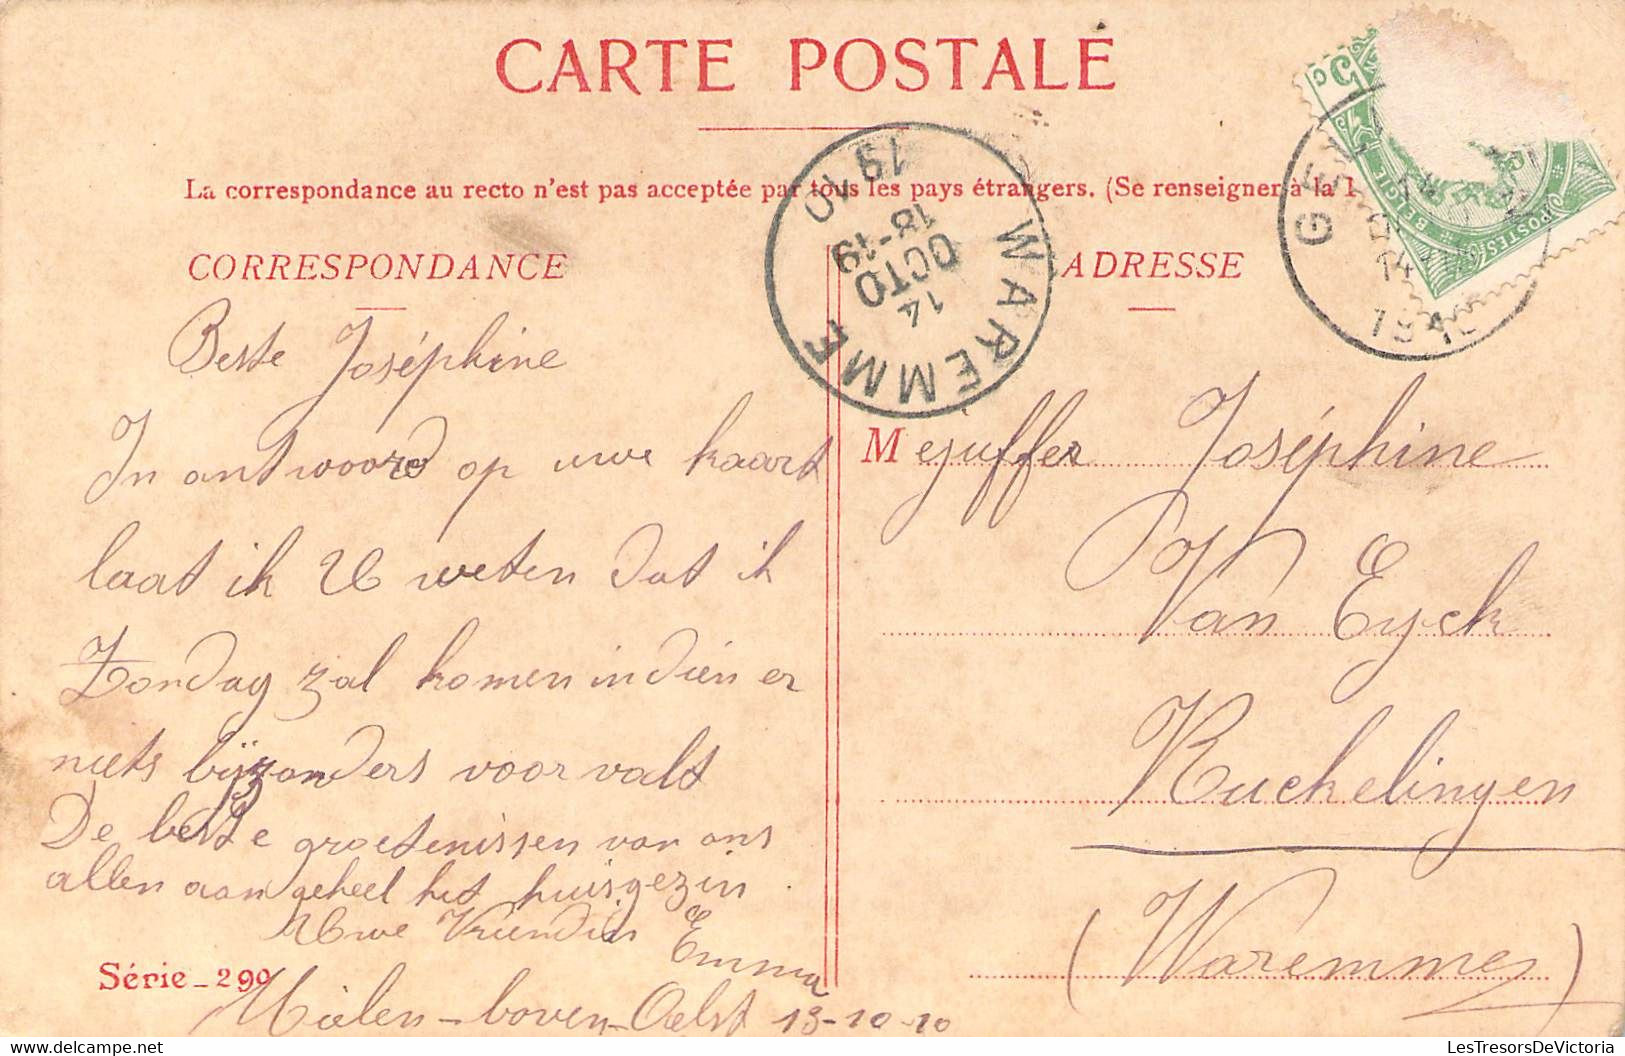 CARTE POSTALE
La correspondance au recto n'est pas acceptée par tous les pays étrangers. (Se renseigner à la
CORRESPONDANCE
Beste Joséphine
In antwoord op uwe kaart
laat ik U weten dat ik
Zondag zal komen indien er
niets bijzonders voorvalt
De beste groetenissen van ons
allen aan geheel het huisgezin
Uwe Vriendin
Emma
Mielen-boven-Aelst 13-10-10
Série _ 299
WAREMME
14
OCTO
18-19
1910
ADRESSE
5 C
BELGIE
POSTES
Mejuffer Joséphine
Van Eyck
Ruckelingen
(Waremme)
LesTresorsDeVictoria